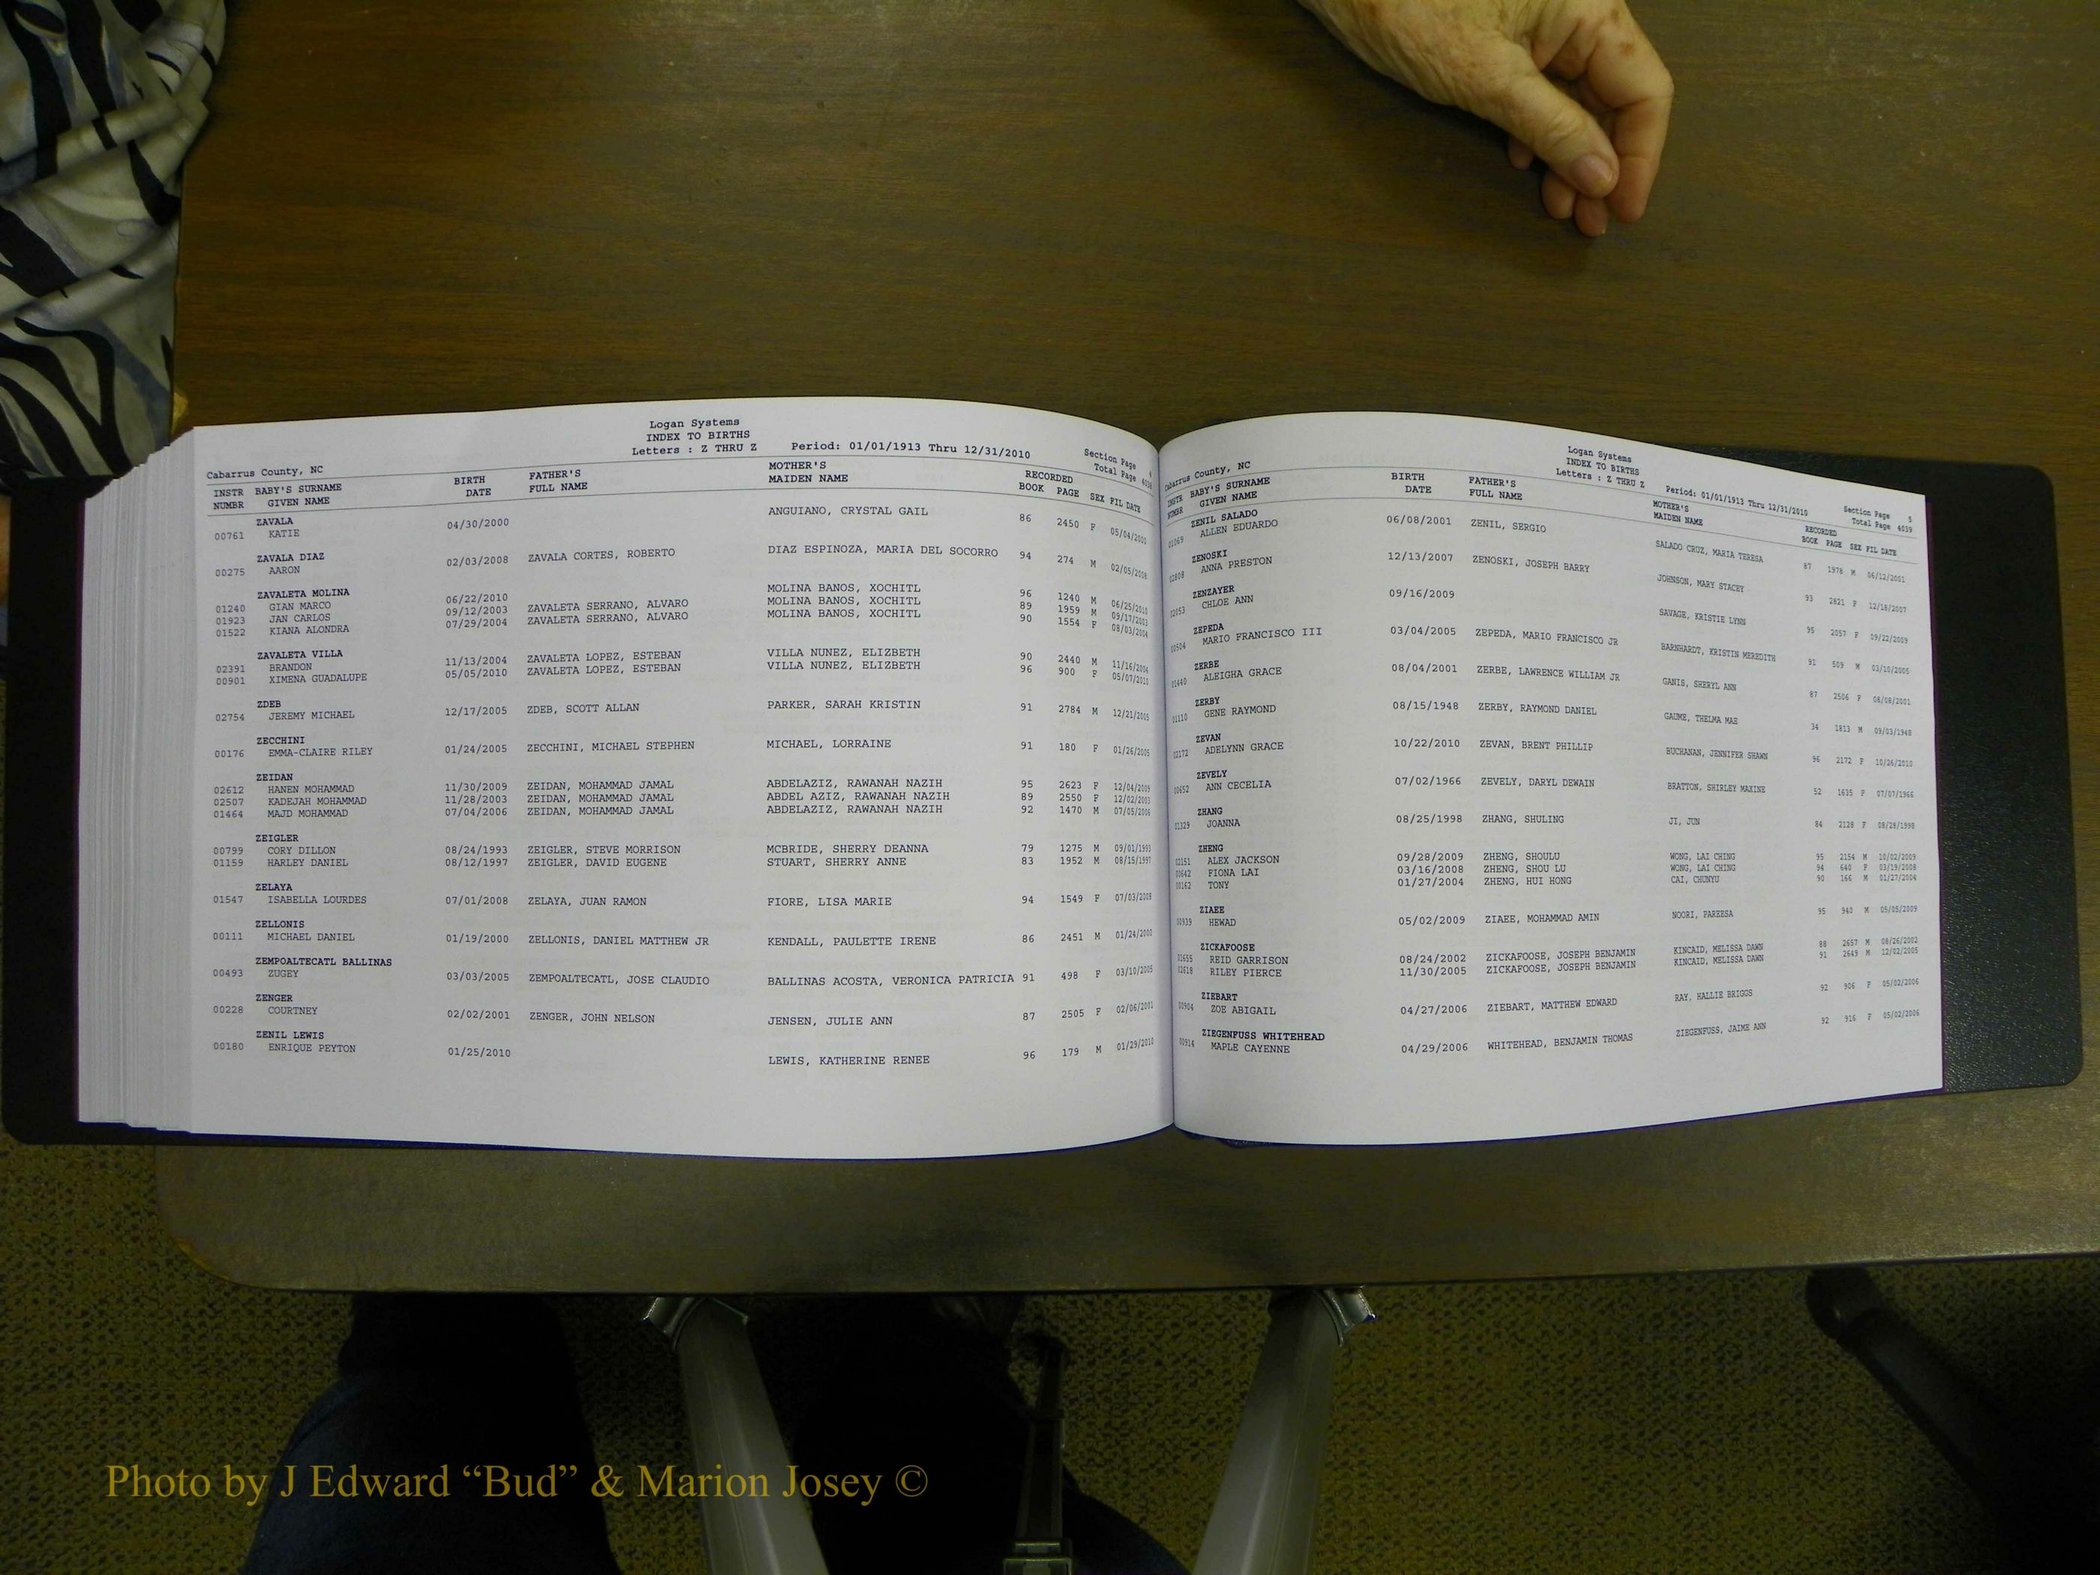 Logan Systems
INDEX TO BIRTHS
Letters : Z THRU Z Period: 01/01/1913 Thru 12/31/2010
Cabarrus County, NC Section Page 4
Total Page 4038
INSTR BABY'S SURNAME BIRTH FATHER'S MOTHER'S RECORDED
NUMBR GIVEN NAME DATE FULL NAME MAIDEN NAME BOOK PAGE SEX FIL DATE
ZAVALA
00761 KATIE 04/30/2000 ANGUIANO, CRYSTAL GAIL 86 2450 F 05/04/2000
ZAVALA DIAZ
00275 AARON 02/03/2008 ZAVALA CORTES, ROBERTO DIAZ ESPINOZA, MARIA DEL SOCORRO 94 274 M 02/05/2008
ZAVALETA MOLINA
01240 GIAN MARCO 06/22/2010 MOLINA BANOS, XOCHITL 96 1240 M 06/25/2010
01923 JAN CARLOS 09/12/2003 ZAVALETA SERRANO, ALVARO MOLINA BANOS, XOCHITL 89 1959 M 09/17/2003
01522 KIANA ALONDRA 07/29/2004 ZAVALETA SERRANO, ALVARO MOLINA BANOS, XOCHITL 90 1554 F 08/03/2004
ZAVALETA VILLA
02391 BRANDON 11/13/2004 ZAVALETA LOPEZ, ESTEBAN VILLA NUNEZ, ELIZBETH 90 2440 M 11/16/2004
00901 XIMENA GUADALUPE 05/05/2010 ZAVALETA LOPEZ, ESTEBAN VILLA NUNEZ, ELIZBETH 96 900 F 05/07/2010
ZDEB
02754 JEREMY MICHAEL 12/17/2005 ZDEB, SCOTT ALLAN PARKER, SARAH KRISTIN 91 2784 M 12/21/2005
ZECCHINI
00176 EMMA-CLAIRE RILEY 01/24/2005 ZECCHINI, MICHAEL STEPHEN MICHAEL, LORRAINE 91 180 F 01/26/2005
ZEIDAN
02612 HANEN MOHAMMAD 11/30/2009 ZEIDAN, MOHAMMAD JAMAL ABDELAZIZ, RAWANAH NAZIH 95 2623 F 12/04/2009
02507 KADEJAH MOHAMMAD 11/28/2003 ZEIDAN, MOHAMMAD JAMAL ABDEL AZIZ, RAWANAH NAZIH 89 2550 F 12/02/2003
01464 MAJD MOHAMMAD 07/04/2006 ZEIDAN, MOHAMMAD JAMAL ABDELAZIZ, RAWANAH NAZIH 92 1470 M 07/05/2006
ZEIGLER
00799 CORY DILLON 08/24/1993 ZEIGLER, STEVE MORRISON MCBRIDE, SHERRY DEANNA 79 1275 M 09/01/1993
01159 HARLEY DANIEL 08/12/1997 ZEIGLER, DAVID EUGENE STUART, SHERRY ANNE 83 1952 M 08/15/1997
ZELAYA
01547 ISABELLA LOURDES 07/01/2008 ZELAYA, JUAN RAMON FIORE, LISA MARIE 94 1549 F 07/03/2008
ZELLONIS
00111 MICHAEL DANIEL 01/19/2000 ZELLONIS, DANIEL MATTHEW JR KENDALL, PAULETTE IRENE 86 2451 M 01/24/2000
ZEMPOALTECATL BALLINAS
00493 ZUGEY 03/03/2005 ZEMPOALTECATL, JOSE CLAUDIO BALLINAS ACOSTA, VERONICA PATRICIA 91 498 F 03/10/2005
ZENGER
00228 COURTNEY 02/02/2001 ZENGER, JOHN NELSON JENSEN, JULIE ANN 87 2505 F 02/06/2001
ZENIL LEWIS
00180 ENRIQUE PEYTON 01/25/2010 LEWIS, KATHERINE RENEE 96 179 M 01/29/2010
Logan Systems
INDEX TO BIRTHS
Letters : Z THRU Z Period: 01/01/1913 Thru 12/31/2010
Cabarrus County, NC Section Page 5
Total Page 4039
INSTR BABY'S SURNAME BIRTH FATHER'S MOTHER'S RECORDED
NUMBR GIVEN NAME DATE FULL NAME MAIDEN NAME BOOK PAGE SEX FIL DATE
ZENIL SALADO
01069 ALLEN EDUARDO 06/08/2001 ZENIL, SERGIO SALADO CRUZ, MARIA TERESA 87 1978 M 06/12/2001
ZENOSKI
02808 ANNA PRESTON 12/13/2007 ZENOSKI, JOSEPH BARRY JOHNSON, MARY STACEY 93 2821 F 12/18/2007
ZENZAYER
02053 CHLOE ANN 09/16/2009 SAVAGE, KRISTIE LYNN 95 2057 F 09/22/2009
ZEPEDA
00504 MARIO FRANCISCO III 03/04/2005 ZEPEDA, MARIO FRANCISCO JR BARNHARDT, KRISTIN MEREDITH 91 509 M 03/10/2005
ZERBE
01440 ALEIGHA GRACE 08/04/2001 ZERBE, LAWRENCE WILLIAM JR GANIS, SHERYL ANN 87 2506 F 08/08/2001
ZERBY
01110 GENE RAYMOND 08/15/1948 ZERBY, RAYMOND DANIEL GAUME, THELMA MAE 34 1813 M 09/03/1948
ZEVAN
02172 ADELYNN GRACE 10/22/2010 ZEVAN, BRENT PHILLIP BUCHANAN, JENNIFER SHAWN 96 2172 F 10/26/2010
ZEVELY
00652 ANN CECELIA 07/02/1966 ZEVELY, DARYL DEWAIN BRATTON, SHIRLEY MAXINE 52 1635 F 07/07/1966
ZHANG
01329 JOANNA 08/25/1998 ZHANG, SHULING JI, JUN 84 2128 F 08/28/1998
ZHENG
02151 ALEX JACKSON 09/28/2009 ZHENG, SHOULU WONG, LAI CHING 95 2154 M 10/02/2009
00642 FIONA LAI 03/16/2008 ZHENG, SHOU LU WONG, LAI CHING 94 640 F 03/19/2008
00162 TONY 01/27/2004 ZHENG, HUI HONG CAI, CHUNYU 90 166 M 01/27/2004
ZIAEE
00939 HEWAD 05/02/2009 ZIAEE, MOHAMMAD AMIN NOORI, PAREESA 95 940 M 05/05/2009
ZICKAFOOSE
01655 REID GARRISON 08/24/2002 ZICKAFOOSE, JOSEPH BENJAMIN KINCAID, MELISSA DAWN 88 2657 M 08/26/2002
02618 RILEY PIERCE 11/30/2005 ZICKAFOOSE, JOSEPH BENJAMIN KINCAID, MELISSA DAWN 91 2649 M 12/02/2005
ZIEBART
00904 ZOE ABIGAIL 04/27/2006 ZIEBART, MATTHEW EDWARD RAY, HALLIE BRIGGS 92 906 F 05/02/2006
ZIEGENFUSS WHITEHEAD
00914 MAPLE CAYENNE 04/29/2006 WHITEHEAD, BENJAMIN THOMAS ZIEGENFUSS, JAIME ANN 92 916 F 05/02/2006
Photo by J Edward “Bud” & Marion Josey ©